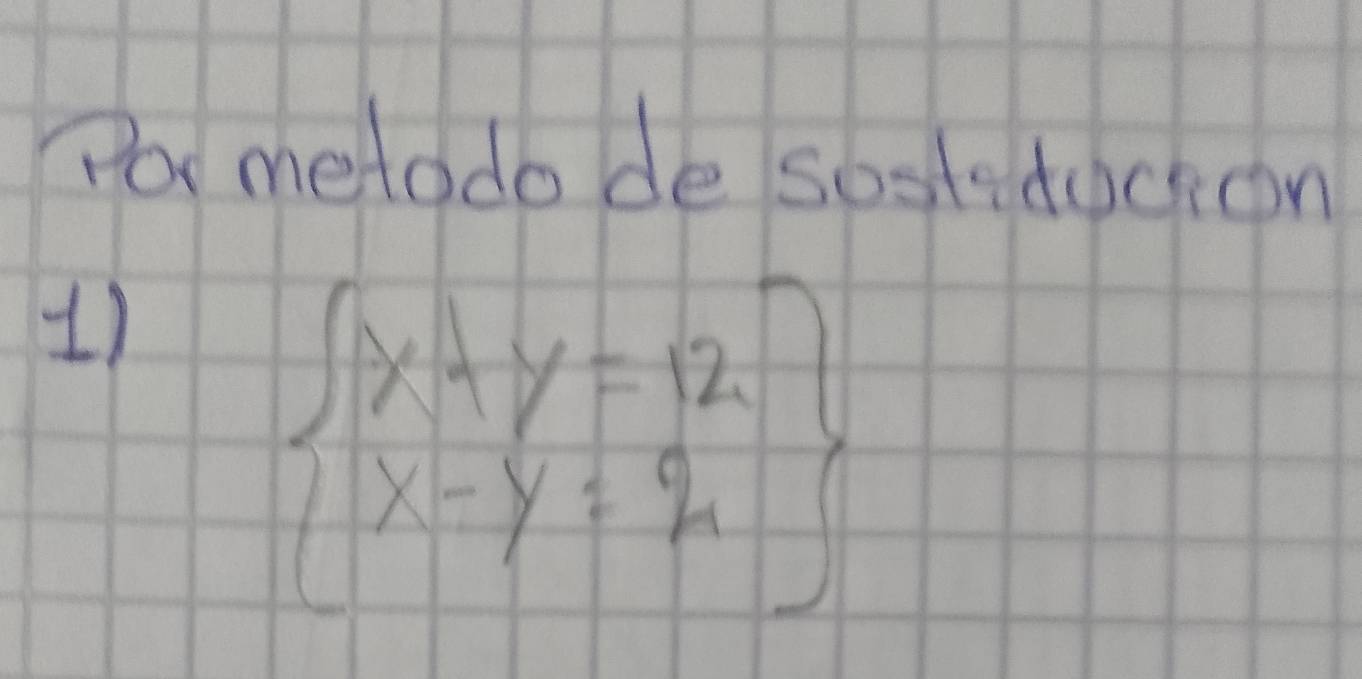 Por metodo de sostitucion
1)
{x + y = 12
x - y = 2}